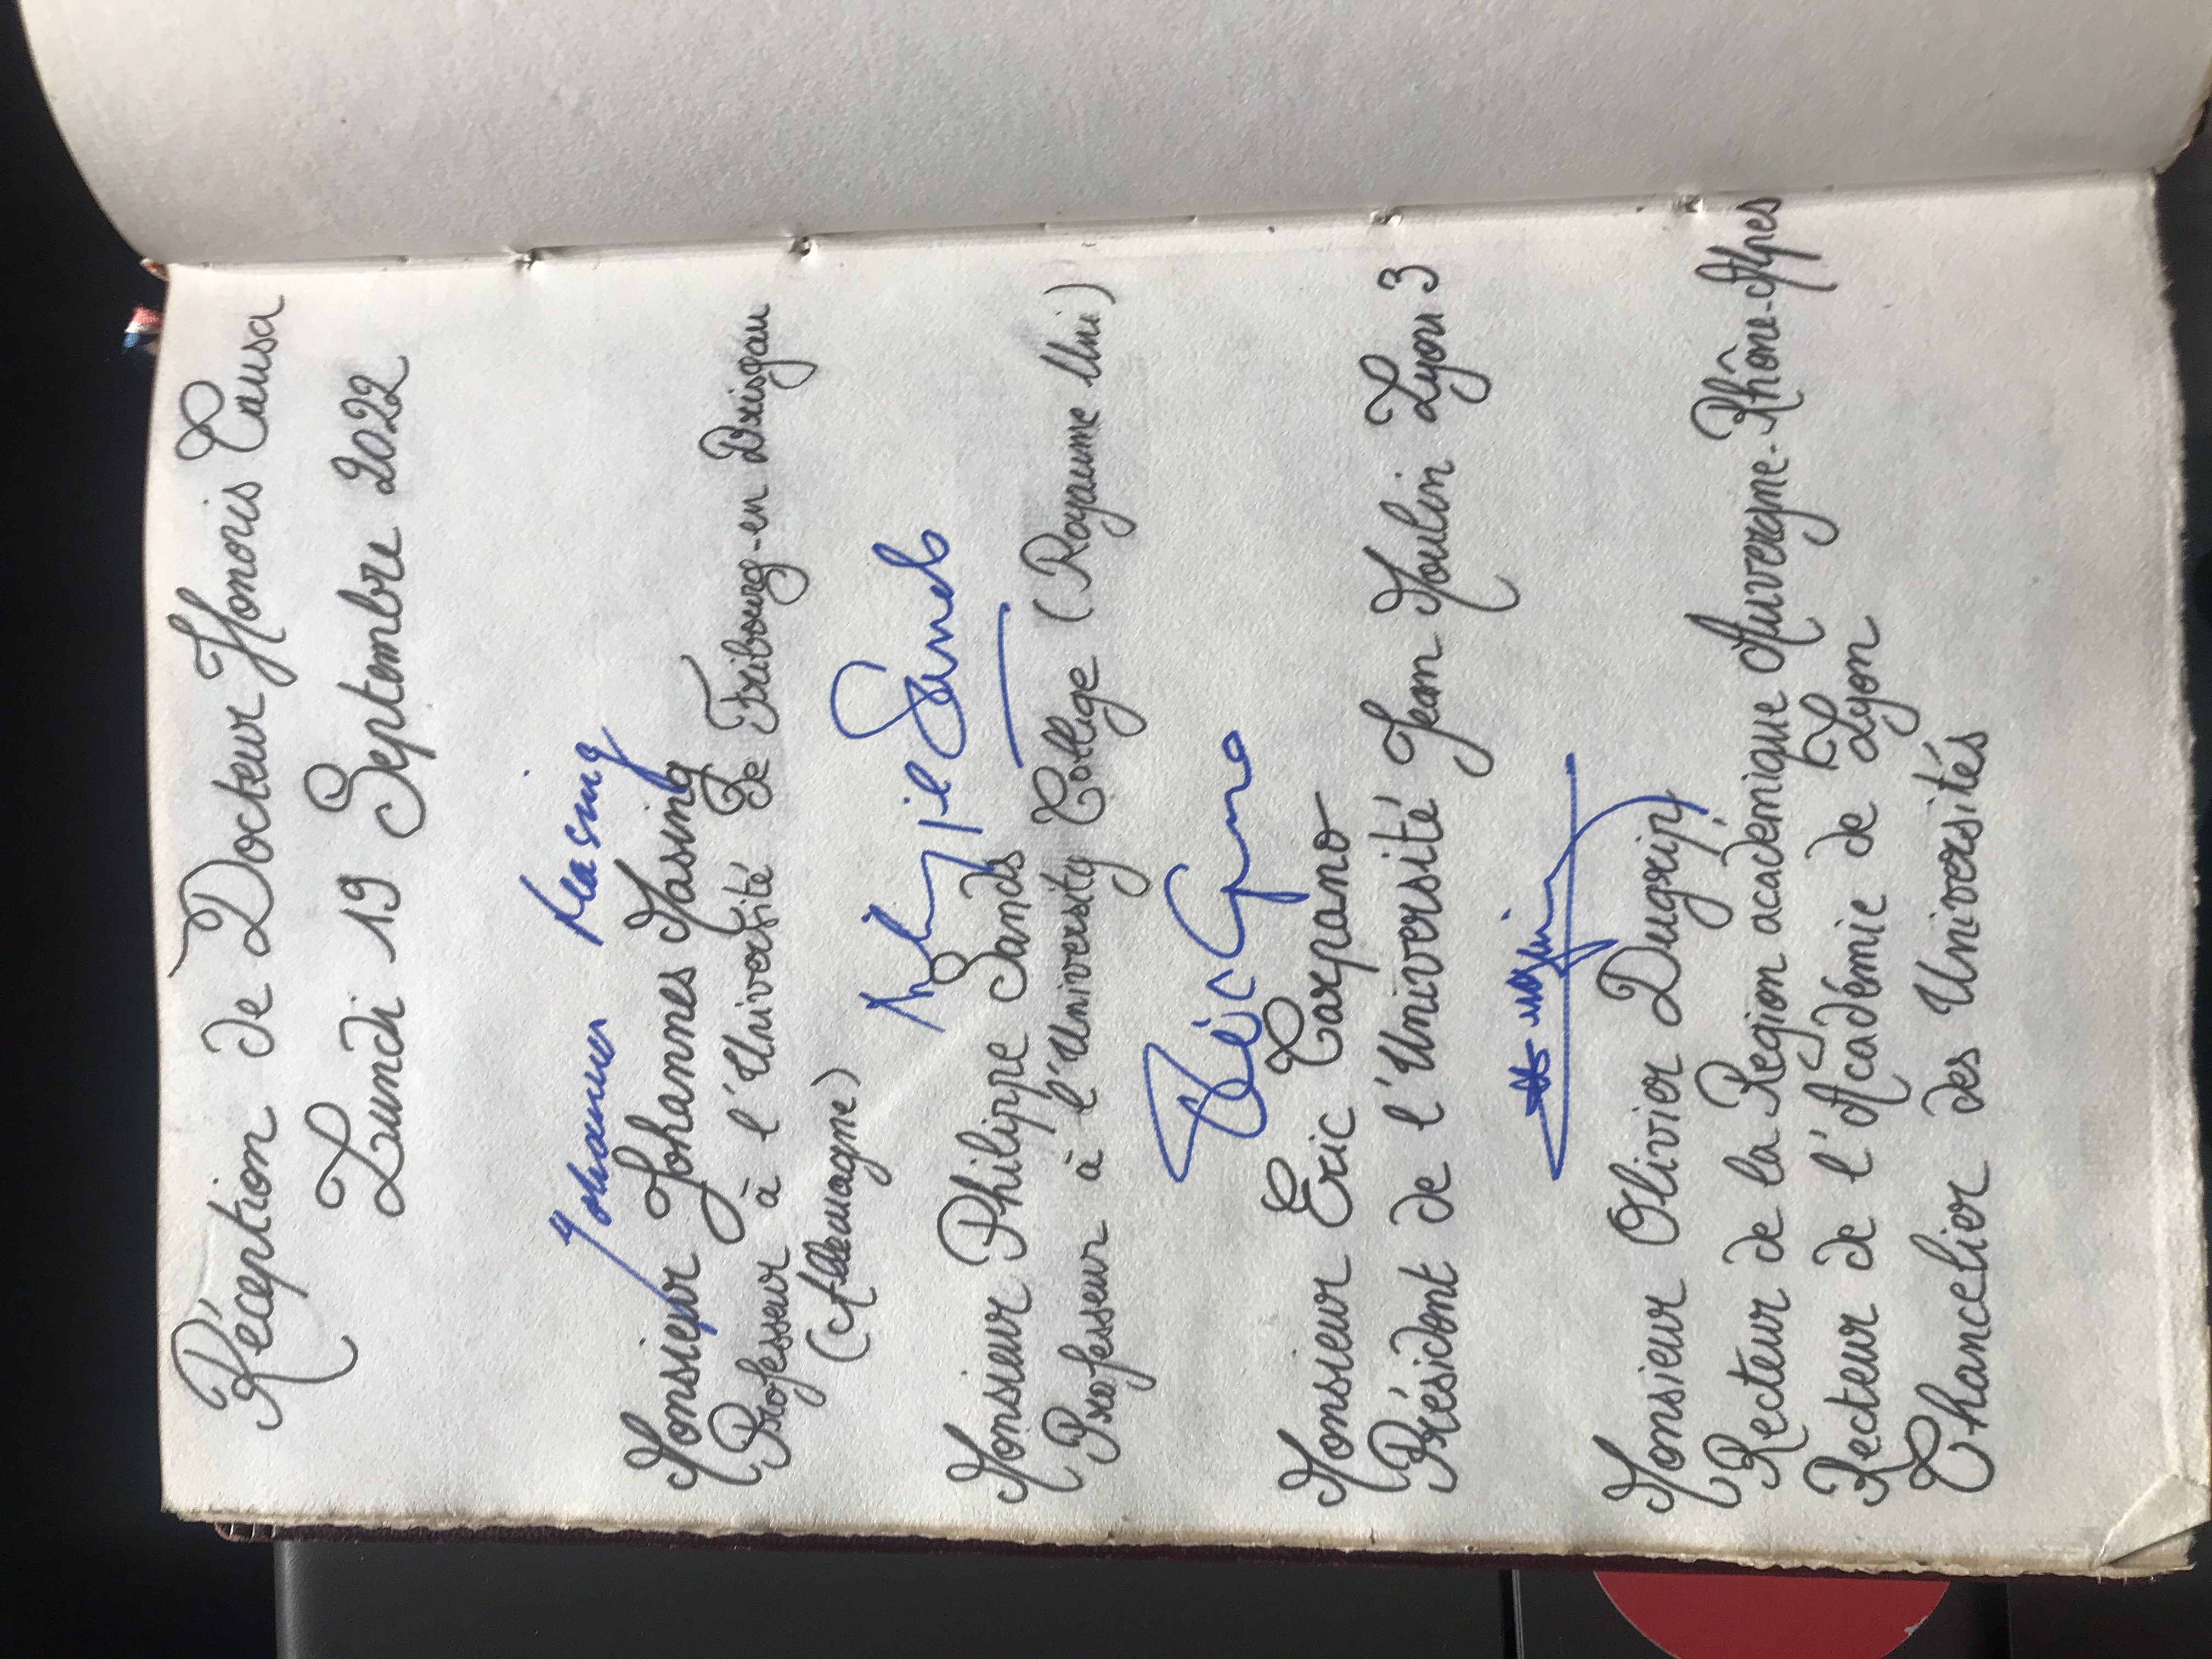 Réception de Docteur Honoris Causa
Lundi 19 Septembre 2022
Johannes Masing
Monsieur Johannes Masing
Professeur à l'Université De Fribourg-en Brisgau
(Allemagne)
Philippe Sands
Monsieur Philippe Sands
Professeur à l'University College (Royaume Uni)
Eric Carpano
Monsieur Eric Carpano
Président de l'Université Jean Moulin Lyon 3
Monsieur Olivier Dugrip,
Recteur de la Region academique Auvergne-Rhône-Alpes
Recteur de l'Académie de Lyon
Chancelier des Universités